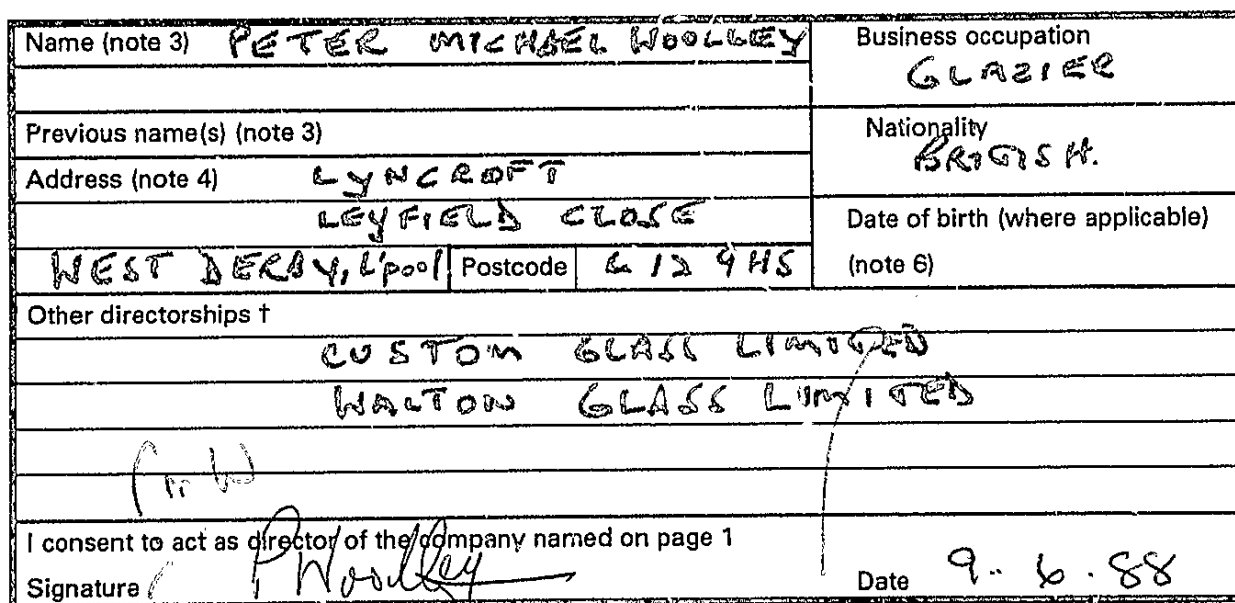 Name (note 3) PETER MICHAEL WOOLLEY
Business occupation
GLAZIER
Previous name(s) (note 3)
Nationality
BRITISH.
Address (note 4) LYNCROFT
LEYFIELD CLOSE
Date of birth (where applicable)
WEST DERBY, L'pool Postcode L12 9HS
(note 6)
Other directorships †
CUSTOM GLASS LIMITED
WALTON GLASS LIMITED
PMW
I consent to act as director of the company named on page 1
Signature PWoolley Date 9.6.88